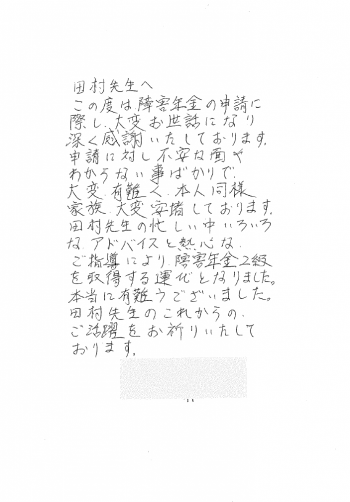 田村先生へ
この度は障害年金の申請に
際し、大変お世話になり
深く感謝いたしております。
申請に対し不安な面や
わからない事ばかりで、
大変、有難く、本人同様
家族、大変安堵しております。
田村先生の忙しい中いろいろ
な、アドバイスと熱心な、
ご指導により、障害年金2級
を取得する運びとなりました。
本当に有難うございました。
田村先生のこれからの、
ご活躍をお祈りいたして
おります。